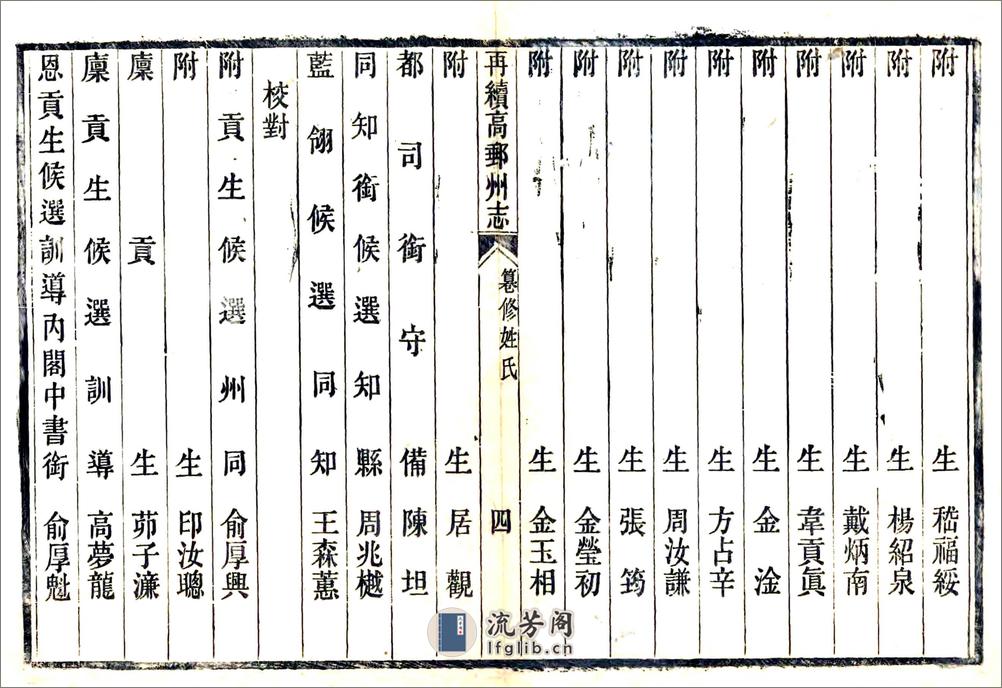 附生嵇福綏
附生楊紹泉
附生戴炳南
附生韋貢眞
附生金淦
附生周汝謙
附生方占辛
附生張筠
附生金瑩初
附生金玉相
再續高郵州志
纂修姓氏
四
附生居觀
都司銜守備陳坦
同知銜候選知縣周兆樾
藍翎候選同知王森蕙
校對
附貢生候選州同俞厚興
附生印汝聰
廩貢生茆子濂
廩貢生候選訓導高夢龍
恩貢生候選訓導內閣中書銜俞厚魁
流芳阁
lfglib.cn